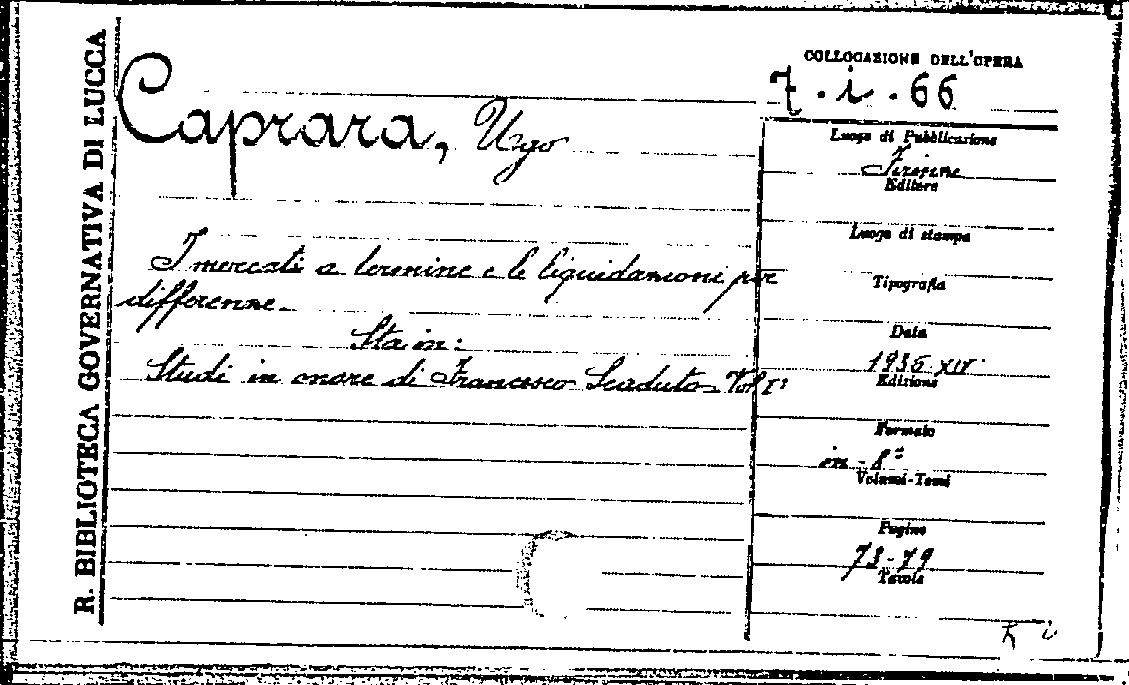 R. BIBLIOTECA GOVERNATIVA DI LUCCA
Caprara, Ugo
I mercati a termine e le liquidazioni per
differenze
Sta in:
Studi in onore di Francesco Scaduto. Vol I°
COLLOCAZIONE DELL'OPERA
7. i. 66
Luogo di Pubblicazione
Firenze
Editore
Luogo di stampa
Tipografia
Data
1936 XIV
Edizione
Formato
in-8°
Volumi-Tomi
Pagine
73-79
Tavole